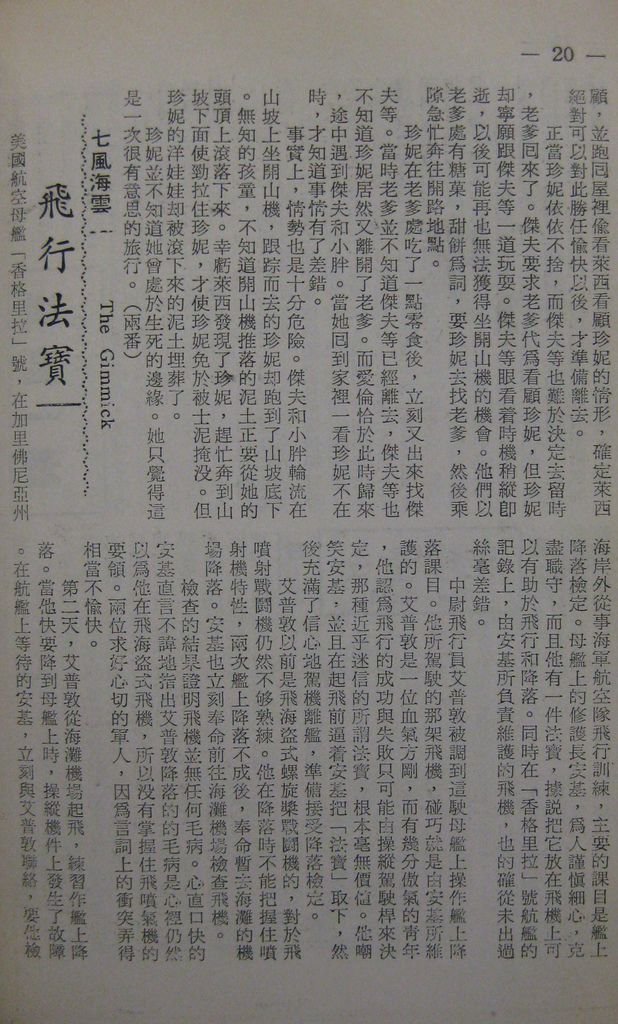 — 20 —
顧，並跑回屋裡偷看萊西看顧珍妮的情形，確定萊西
絕對可以對此勝任愉快以後，才準備離去。
正當珍妮依依不捨，而傑夫等也難於決定去留時
，老爹回來了。傑夫要求老爹代為看顧珍妮，但珍妮
却寧願跟傑夫等一道玩耍。傑夫等眼看着時機稍縱即
逝，以後可能再也無法獲得坐開山機的機會。他們以
老爹處有糖菓，甜餅為詞，要珍妮去找老爹，然後乘
隙急忙奔往開路地點。
珍妮在老爹處吃了一點零食後，立刻又出來找傑
夫等。當時老爹並不知道傑夫等已經離去，傑夫等也
不知道珍妮居然又離開了老爹。而愛倫恰於此時歸來
，途中遇到傑夫和小胖。當她回到家裡一看珍妮不在
時，才知道事情有了差錯。
事實上，情勢也是十分危險。傑夫和小胖輪流在
山坡上坐開山機，跟踪而去的珍妮却跑到了山坡底下
。無知的孩童，不知道開山機推落的泥土正要從她的
頭頂上滾落下來。幸虧萊西發現了珍妮，趕忙奔到山
坡下面使勁拉住珍妮，才使珍妮免於被土泥掩没。但
珍妮的洋娃娃却被滾下來的泥土埋葬了。
珍妮並不知道她曾處於生死的邊緣。她只覺得這
是一次很有意思的旅行。（兩番）
七風海雲－
The Gimmick
飛行法寶
美國航空母艦「香格里拉」號，在加里佛尼亞州
海岸外從事海軍航空隊飛行訓練，主要的課目是艦上
降落檢定。母艦上的修護長安基，為人謹慎細心，克
盡職守，而且他有一件法寶，據説把它放在飛機上可
以有助於飛行和降落。同時在「香格里拉」號航艦的
記錄上，由安基所負責維護的飛機，也的確從未出過
絲毫差錯。
中尉飛行員艾普敦被調到這駛母艦上操作艦上降
落課目。他所駕駛的那架飛機，碰巧就是由安基所維
護的。艾普敦是一位血氣方剛，而有幾分傲氣的青年
，他認為飛行的成功與失敗只可能由操縱駕駛桿來決
定，那種近乎迷信的所謂法寶，根本毫無價值。他嘲
笑安基，並且在起飛前逼着安基把「法寶」取下，然
後充滿了信心地駕機離艦，準備接受降落檢定。
艾普敦以前是飛海盜式螺旋槳戰鬪機的，對於飛
噴射戰鬪機仍然不够熟練。他在降落時不能把握住噴
射機特性，兩次艦上降落不成後，奉命暫去海灘的機
場降落。安基也立刻奉命前往海灘機場檢查飛機。
檢查的結果證明飛機並無任何毛病。心直口快的
安基直言不諱地指出艾普敦降落的的毛病是心裡仍然
以為他在飛海盜式飛機，所以没有掌握住飛噴氣機的
要領。兩位求好心切的軍人，因為言詞上的衝突弄得
相當不愉快。
第二天，艾普敦從海灘機場起飛，練習作艦上降
落。當他快要降到母艦上時，操縱機件上發生了故障
。在航艦上等待的安基，立刻與艾普敦聯絡，要他檢